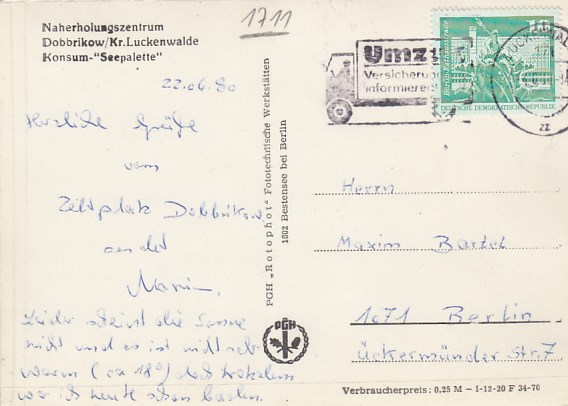 1711
Naherholungszentrum
Dobbrikow/Kr.Luckenwalde
Konsum-"Seepalette"
22.06.80
Herzliche Grüße
vom
Zeltplatz Dobbrikow
sendet
Mario,
Leider scheint die Sonne
nicht und es ist nicht sehr
warm (ca 18°) doch trotzdem
war ich heute schon baden.
PGH „Rotophot" Fototechnische Werkstätten
1602 Bestensee bei Berlin
PGH
Umz
Versicherun
informieren
10
DEUTSCHE DEMOKRATISCHE REPUBLIK
LUCKENWAL
zz
Herrn
Maxim Bartel
1071 Berlin
Ückermünder Str. 7
Verbraucherpreis: 0,25 M – I-12-20 F 34-70